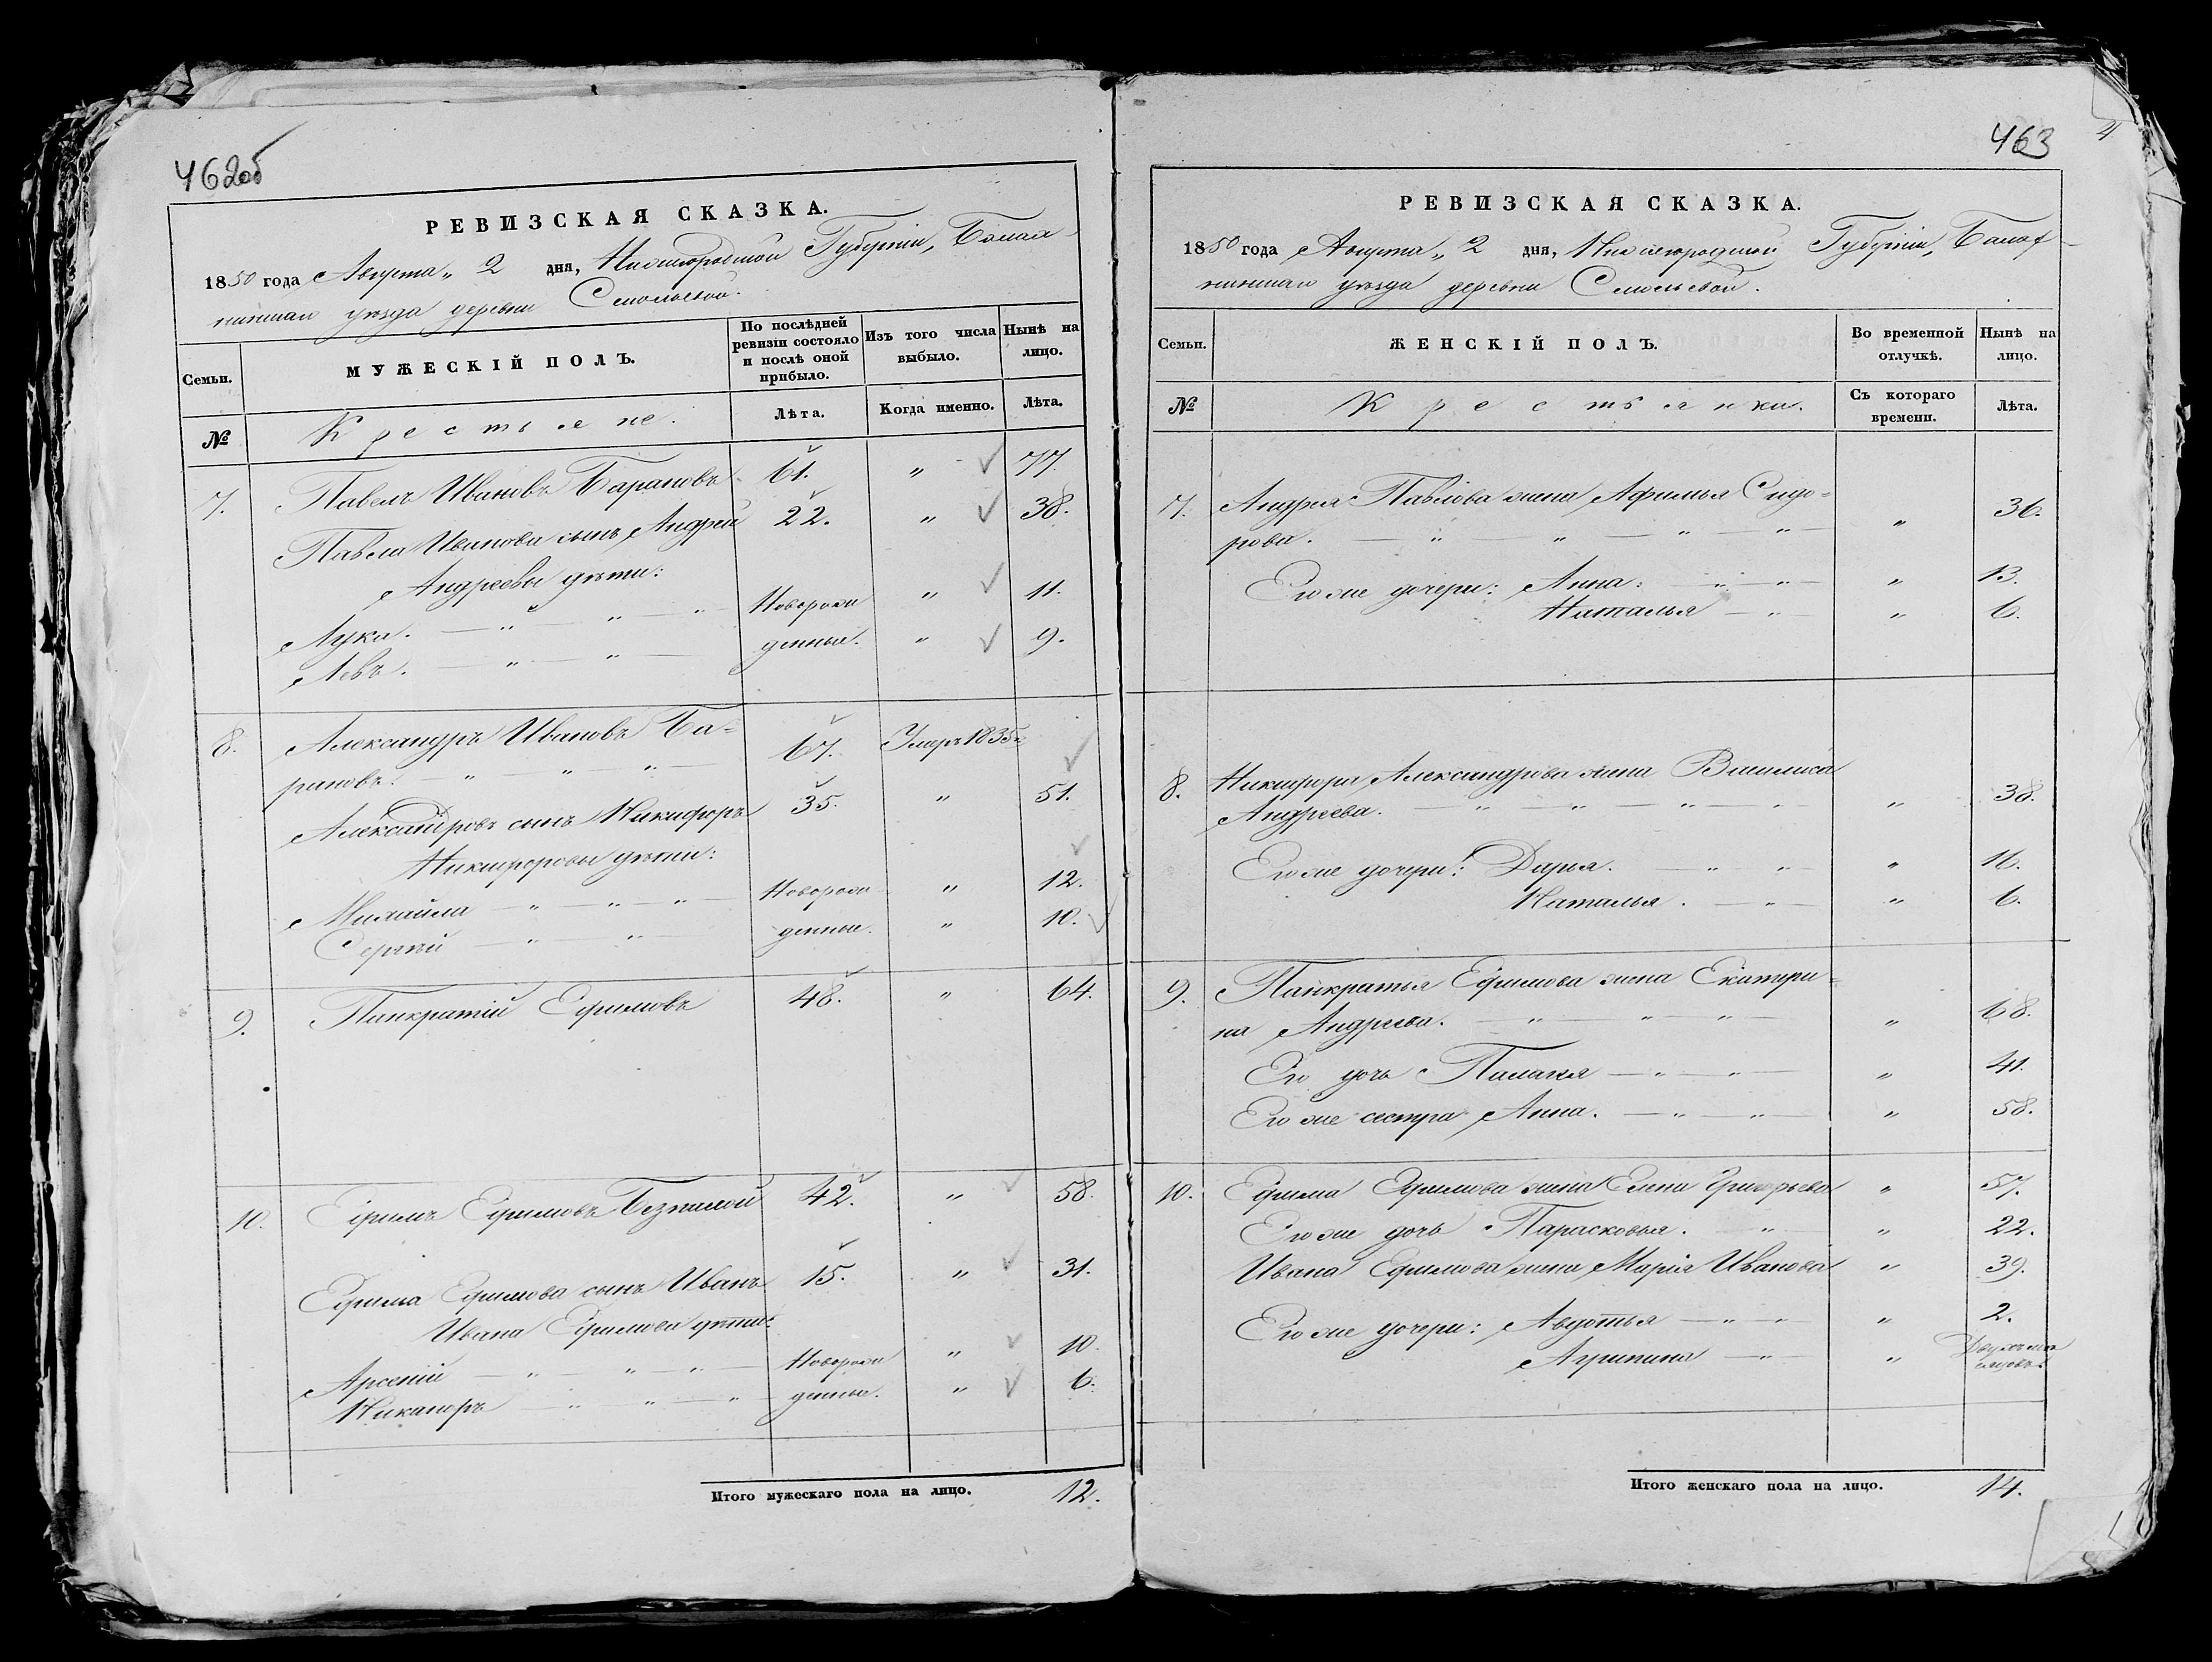 462об
РЕВИЗСКАЯ СКАЗКА.
1850 года Августа „ 2 дня, Нижегородской Губерніи, Балах-
нинскаго уѣзда деревни Смольевой.
Семьи.
МУЖЕСКІЙ ПОЛЪ.
По послѣдней ревизіи состояло и послѣ оной прибыло.
Изъ того числа выбыло.
Нынѣ на лицо.
№
Крестьяне.
Лѣта.
Когда именно.
Лѣта.
7. Павелъ Ивановъ Барановъ 61. „ 77.
Павла Иванова сынъ Андрей 22. „ 38.
Андреевы дѣти:
Лука. — „ — „ — „ Новорож- „ 11.
Левъ. — „ — „ — денные. „ 9.
8. Александръ Ивановъ Ба-
рановъ. — „ — „ — „ — 67. Умеръ 1835
Александровъ сынъ Никифоръ 35. „ 51.
Никифоровы дѣти:
Михайла — „ — „ — „ — Новорож- „ 12.
Сергѣй — „ — „ — денные. „ 10.
9. Панкратій Ефимовъ 48. „ 64.
10. Ефимъ Ефимовъ 42. „ 58.
Ефима Ефимова сынъ Иванъ 15. „ 31.
Ивана Ефимова дѣти:
Арсеній — „ — „ — „ — Новорож- „ 10.
Никаноръ — „ — „ — „ денные. „ 6.
Итого мужескаго пола на лицо. 12.
463
РЕВИЗСКАЯ СКАЗКА.
1850 года Августа „ 2 дня, Нижегородской Губерніи, Балах-
нинскаго уѣзда деревни Смольевой.
Семьи.
ЖЕНСКІЙ ПОЛЪ.
Во временной отлучкѣ.
Нынѣ на лицо.
№
Крестьянки.
Съ котораго времени.
Лѣта.
7. Андрея Павлова жена Афимья Сидо=
рова. — „ — „ — „ — „ — „ 36.
Его же дочери: Анна: — „ — „ — „ 13.
Наталья — „ — „ 6.
8. Никифора Александрова жена Василиса
Андреева. — „ — „ — „ — „ „ 38.
Его же дочери: Дарья. — „ — „ — „ 16.
Наталья. — „ — „ 6.
9. Панкратья Ефимова жена Екатери=
на Андреева. — „ — „ — „ — „ 68.
Его дочь Палагея — „ — „ — „ 41.
Его же сестра Анна. — „ — „ — „ 58.
10. Ефима Ефимова жена Елена Григорьева „ 57.
Его же дочь Парасковья. — „ — „ 22.
Ивана Ефимова жена Марія Иванова „ 39.
Его же дочери: Авдотья — „ — „ — „ 2.
Агрипина — „ — „ Двухъ мѣ-
сяцовъ
Итого женскаго пола на лицо. 14.